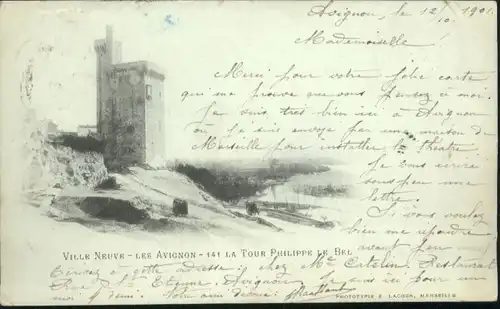 Avignon, le 12/10. 1901.
Mademoiselle,
Merci pour votre jolie carte
qui me prouve que vous pensez à moi.
Je suis très bien ici à Avignon
où je suis envoyé par une maison de
Marseille pour installer le théatre
Je vous écrirai
sous peu une
lettre.
Si vous voulez
bien me répondre
avant peu
VILLE NEUVE - LES AVIGNON - 141 LA TOUR PHILIPPE LE BEL
Ecrivez à cette adresse: chez Mr Catelin. Restaurant
Rue de St Etienne. Avignon Je suis ici pour un
mois ½ demi. Votre ami dévoué:
PHOTOTYPIE E. LACOUR, MARSEILLE